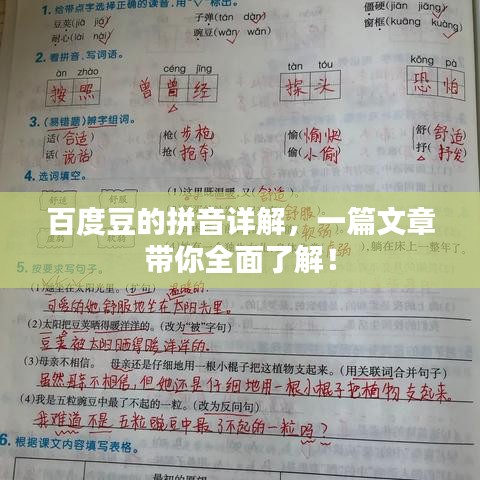 1. 给带点字选择正确的读音,用“√”标出。
豆荚(jiā jiá) 子弹(tán dàn) 僵硬(jiān jiāng)
耐心(lài nài) 豌豆(wān wǎn) 窗框(kuāng kuàng)
2. 看拼音,写词语。
àn zhào céng jīng tàn tóu kǒng pà
按照 曾 曾经 探头 恐怕
3. (易错题)辨字组词。
适(合适) 抢(步枪) 偷(愉快) 舒(舒适)
话(说话) 抢(抢夺) 偷(小偷) 抒(抒发)
4. 选词填空。
舒适 舒服
百度豆的拼音详解,一篇文章
带你全面了解!
躺在床上一整年了
5. 按要求写句子。
(1)她坐在太阳光里。(扩句) 温暖的
可爱的她舒服地坐在太阳光里。
(2)太阳把豆荚晒得暖洋洋的。(改为“被”字句)
豆荚被太阳晒得暖洋洋的。
(3)母亲不相信。 母亲还是仔细地用一根小棍子把这植物支起来。(用关联词合并句子)
虽然母亲不相信,但她还是仔细地用一根小棍子把植物支起来。
(4)我是五粒豌豆中最了不起的一粒。(改为反问句)
我难道不是五粒豌豆中最了不起的一粒吗?
6. 根据课文内容填写表格。
最初的愿望